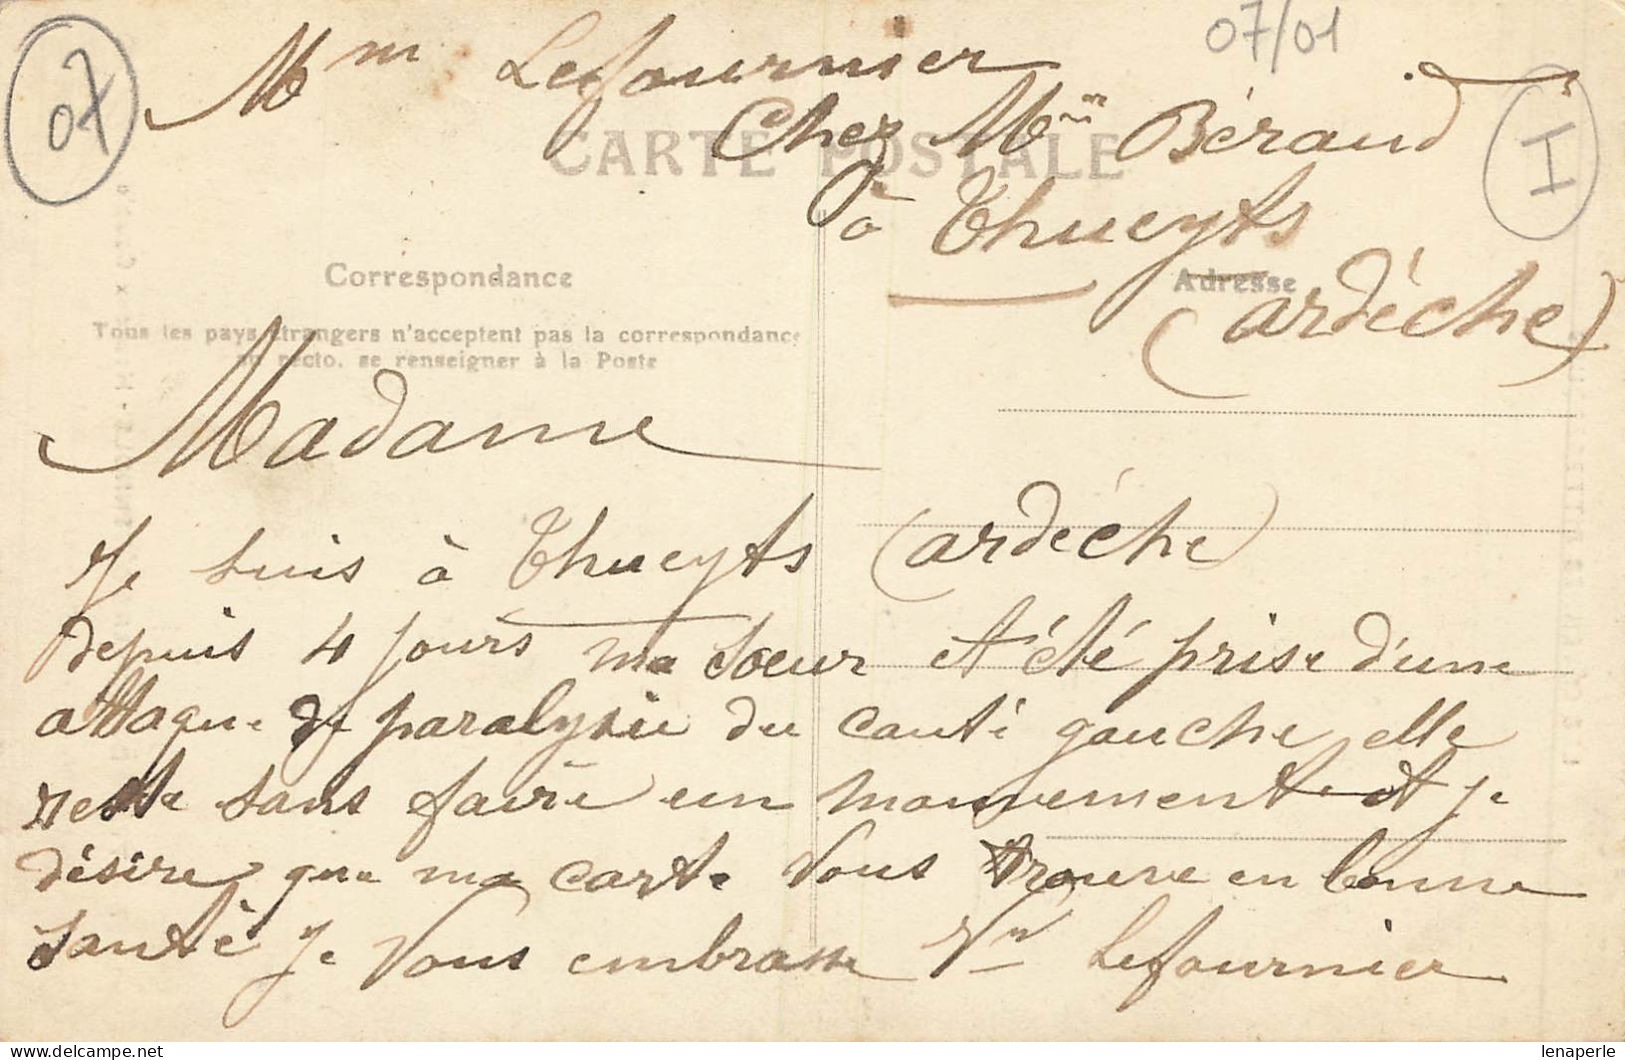 07
07/01
I
Mm Lefournier
Chez Mm Béraud
CARTE POSTALE
à Thueyts
Correspondance
Adresse
(ardéche)
Tous les pays étrangers n'acceptent pas la correspondance
au recto. se renseigner à la Poste
Madame
Je suis à Thueyts (ardéche)
depuis 4 jours ma soeur At été prise d'une
attaque de paralysie du cauté gauche elle
reste sans faire un mouvement et je
désire que ma carte Vous trouve en bonne
santé je Vous embrasse Vn Lefournier
lenaperle